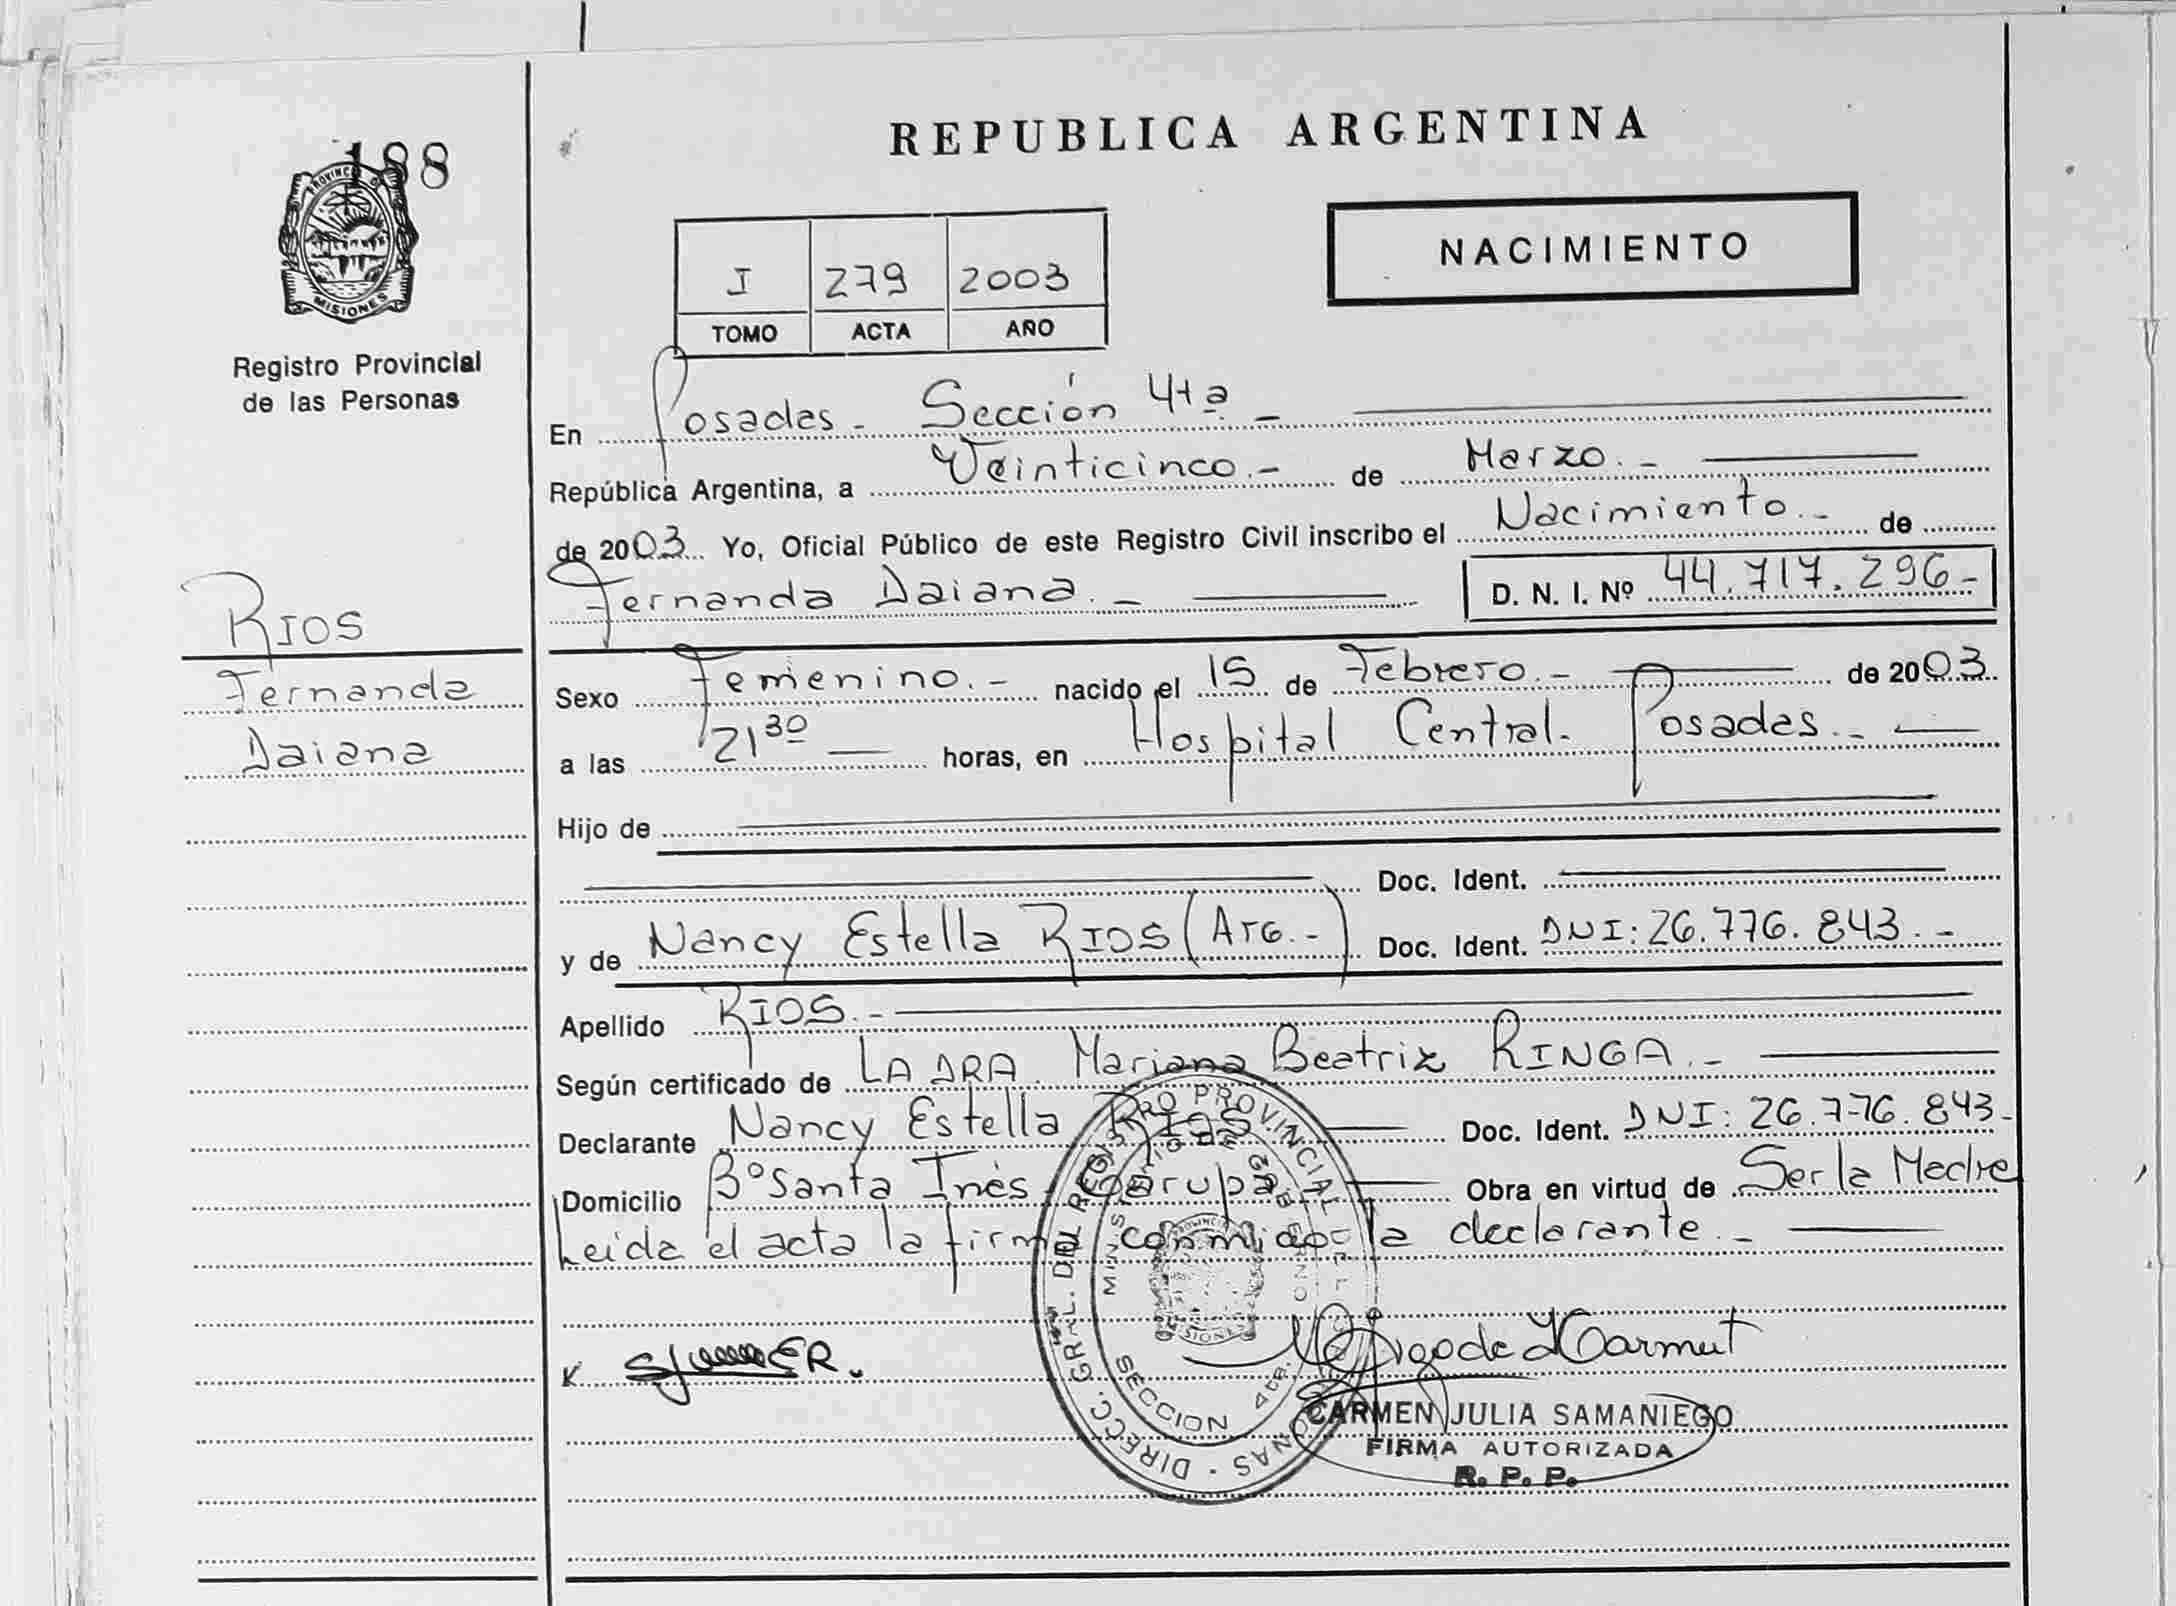 188
PROVINCIA DE
MISIONES
Registro Provincial
de las Personas
RIOS
Fernanda
Daiana
REPUBLICA ARGENTINA
NACIMIENTO
I 279 2003
TOMO ACTA AÑO
En Posadas - Sección 4ta -
República Argentina, a Veinticinco.- de Marzo.-
de 2003 Yo, Oficial Público de este Registro Civil inscribo el Nacimiento.- de
Fernanda Daiana.- D. N. I. Nº 44.717.296-
Sexo Femenino.- nacido el 15 de Febrero.- de 2003
a las 21 30 horas, en Hospital Central. Posadas.-
Hijo de
Doc. Ident.
y de Nancy Estella RIOS (Arg.-) Doc. Ident. DNI: 26.776.843.-
Apellido RIOS.-
Según certificado de LA DRA. Mariana Beatriz RINGA.-
Declarante Nancy Estella RIOS Doc. Ident. DNI: 26.776.843-
Domicilio Bº Santa Inés. Garupá Obra en virtud de Ser la Madre
Leida el acta la firma conmigo la declarante.-
DIRECC. GRAL. DEL REGISTRO PROVINCIAL DE LAS PERSONAS
SECCION 4ta.
MISIONES
CARMEN JULIA SAMANIEGO
FIRMA AUTORIZADA
R. P. P.